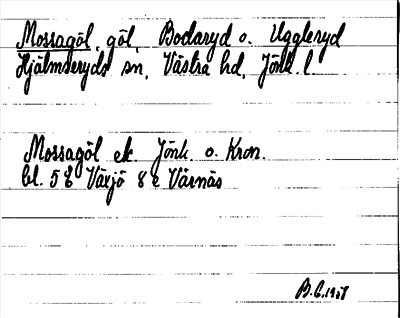 Mossagöl, göl, Bodaryd o. Uggleryd
Hjälmseryds sn, Västra hd, Jönk. l.
Mossagöl ek Jönk. o. Kron.
bl. 5 E Växjö 8 e Värnäs
B.G. 1957